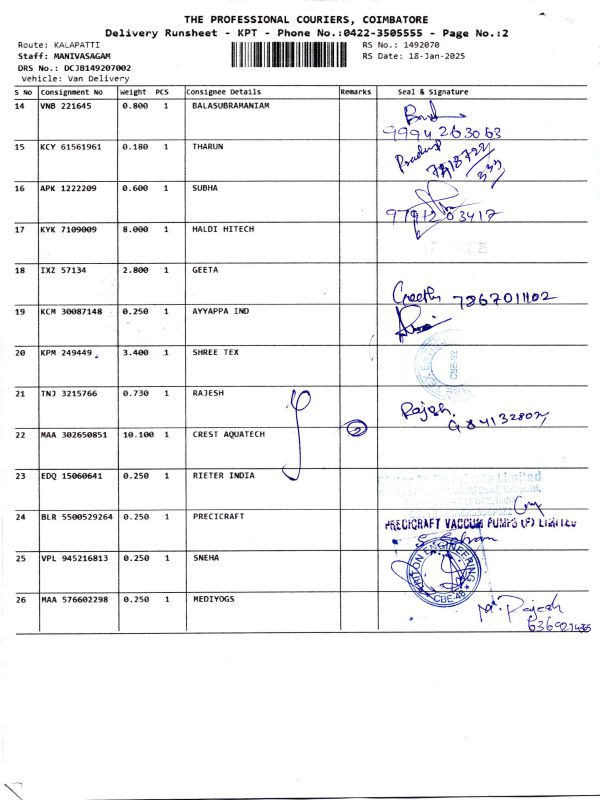 THE PROFESSIONAL COURIERS, COIMBATORE
Delivery Runsheet - KPT - Phone No.:0422-3505555 - Page No.:2
Route: KALAPATTI
RS No.: 1492070
Staff: MANIVASAGAM
RS Date: 18-Jan-2025
DRS No.: DCJB149207002
Vehicle: Van Delivery
S No Consignment No Weight PCS Consignee Details Remarks Seal & Signature
14 VNB 221645 0.800 1 BALASUBRAMANIAM
9994263063
15 KCY 61561961 0.180 1 THARUN
Pradeep
16 APK 1222209 0.600 1 SUBHA
9791203417
17 KYK 7109009 8.000 1 HALDI HITECH
18 IXZ 57134 2.800 1 GEETA
Geetha 7867011102
19 KCM 30087148 0.250 1 AYYAPPA IND
20 KPM 249449 3.400 1 SHREE TEX
21 TNJ 3215766 0.730 1 RAJESH
Rajesh.
22 MAA 302650851 10.100 1 CREST AQUATECH 2
23 EDQ 15060641 0.250 1 RIETER INDIA
Rieter India Private Limited
24 BLR 5500529264 0.250 1 PRECICRAFT
PRECICRAFT VACCUM PUMPS (P) LIMITED
25 VPL 945216813 0.250 1 SNEHA
ENGINEERING
CBE-48
26 MAA 576602298 0.250 1 MEDIYOGS
Rajesh